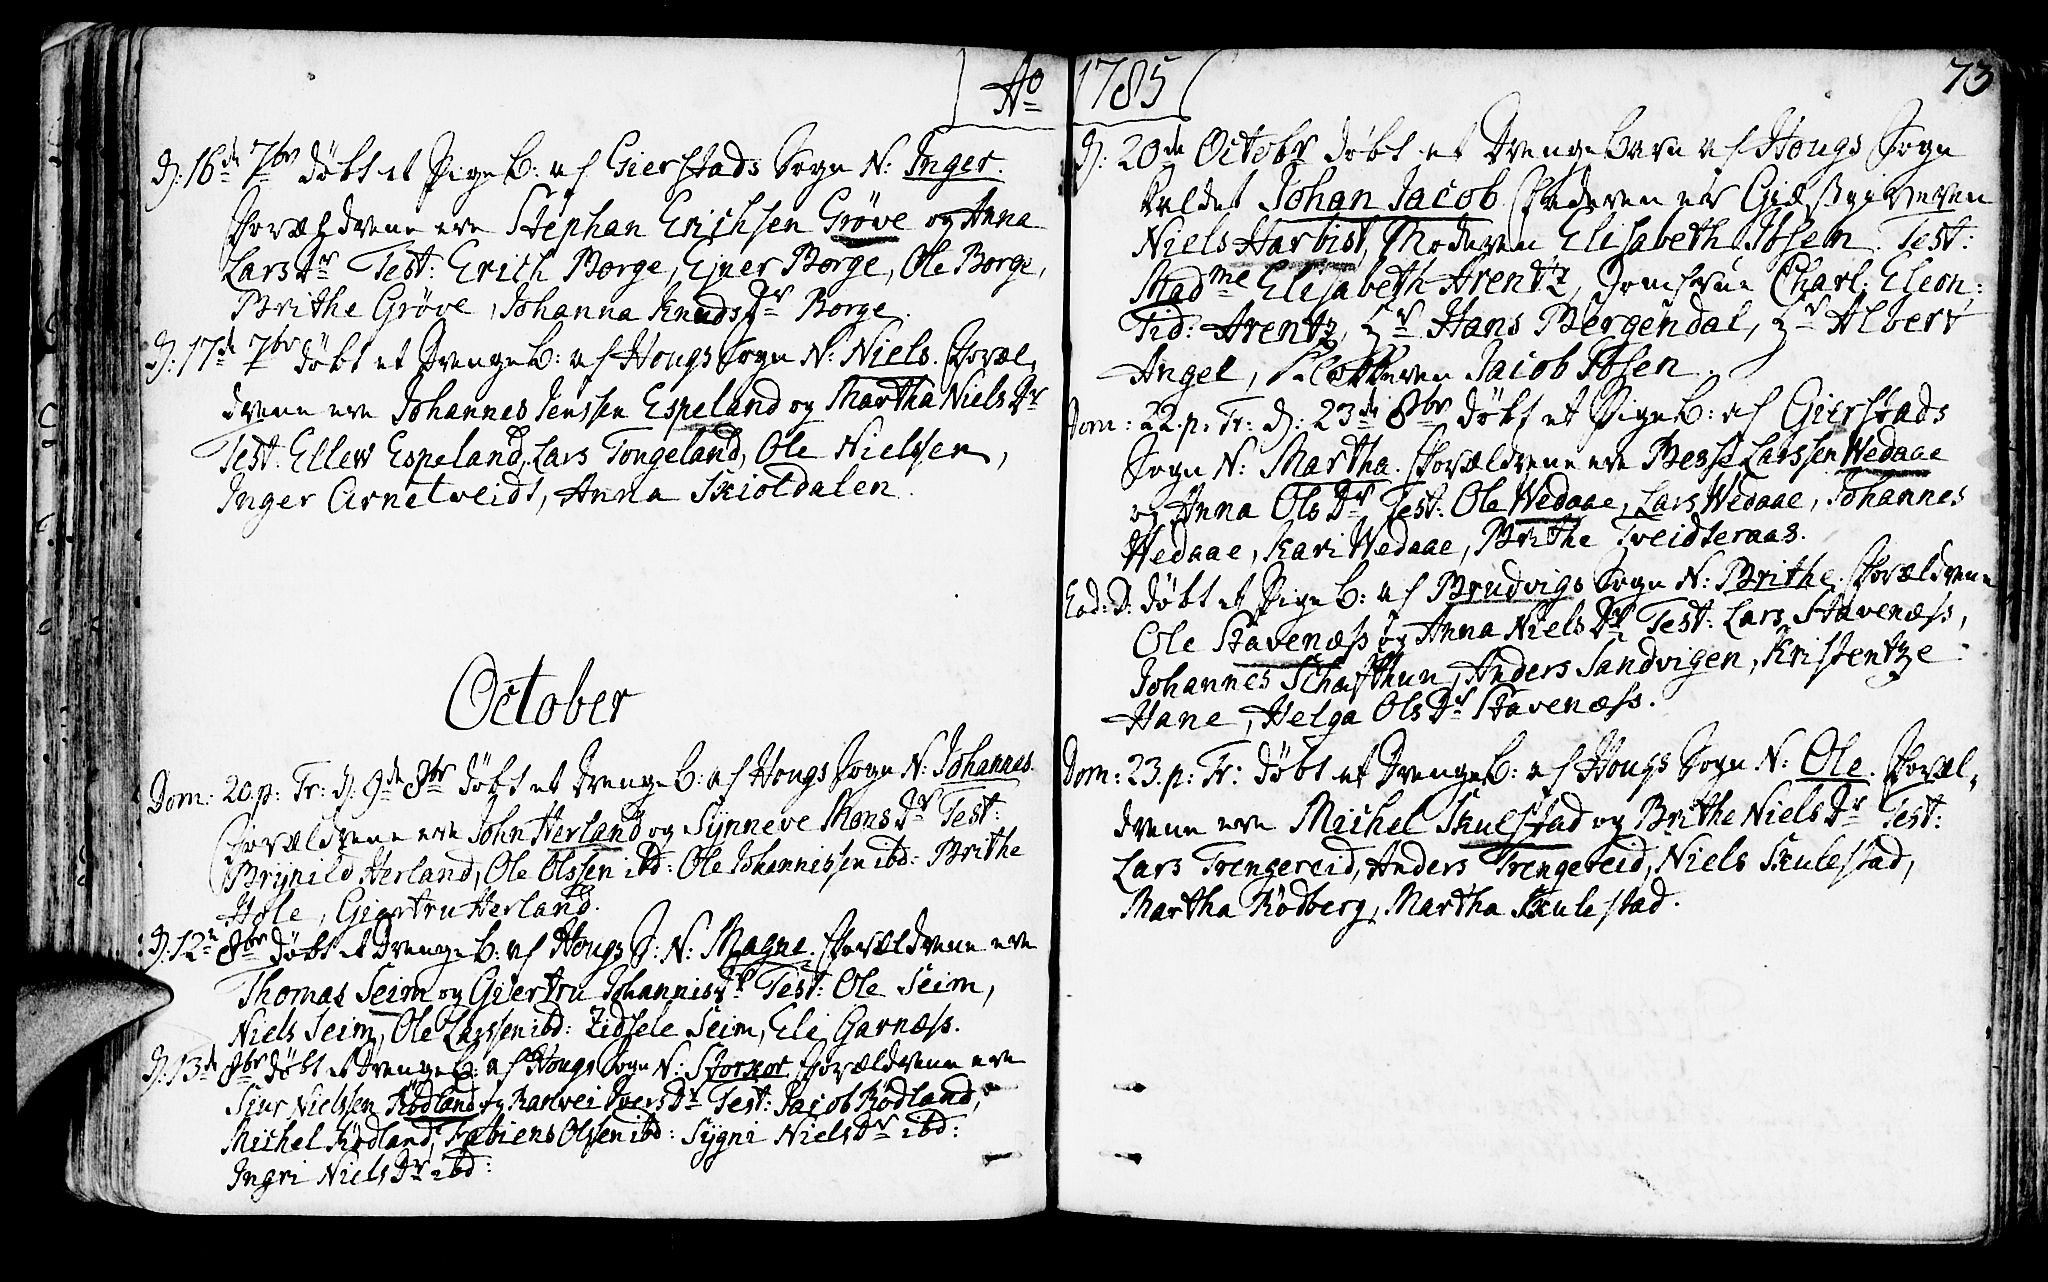 Ao
D: 16de 7br döbt et Pigeb: af Gierstads Sogn N: Inger.
Forældrene ere Stephan Erichsen Gröve og Anna
Lars Dr Test: Erich Borge, Ejner Borge, Ole Borge,
Brithe Gröve, Johanna Knuds Dr Borge.
D: 17de 7br döbt et Drengeb: af Hougs Sogn N: Niels. Foræl-
drene ere Johannes Jenssen Espeland og Martha Niels Dr
Test: Ellew Espeland, Lars Tongeland, Ole Nielssen,
Inger Arnetveidt, Anna Skioldalen.
October
Dom: 20. p: Tr: D: 9de 8br döbt et Drengeb: af Hougs Sogn N: Johannes.
Forældrene ere John Herland og Synneve Mons Dr Test:
Brynild Herland, Ole Olssen ibd: Ole Johannissen ibd: Brithe
Hole, Giertru Herland.
D: 12te 8br döbt et Drengeb: af Hougs S: N: Magne. Forældrene ere
Thomas Seim og Giertru Johannis Dr Test: Ole Seim,
Niels Seim, Ole Larssen ibd: Zidsele Seim, Eli Garnæss.
D: 13de 8br döbt et Drengeb: af Hougs Sogn N: Storkor. Forældrene ere
Siur Nielssen Rödland og Ranvei Ivers Dr Test: Jacob Rödland,
Michel Rödland, Fabiens Olssen ibd: Sygni Niels Dr ibd:
Ingri Niels Dr ibd:
1785
73
D: 20de Octobr döbt et Drengebarn af Hougs Sogn
kaldet Johan Jacob. Faderen er Giæstgiveren
Niels Harbist, Moderen Elisabeth Ibsen. Test:
Madme Elisabeth Arentz, Jomfrue Charl: Eleon:
Tid: Arentz, Hr Hans Bergendal, Hr Albert
Angel, Jacob Ibsen.
Dom: 22. p. Tr: D: 23de 8br döbt et Pigeb: af Gierstads
Sogn N: Martha. Forældrene ere Besse Larssen Wedaae
og Anna Ols Dr Test: Ole Wedaae, Lars Wedaae, Johannes
Wedaae, Kari Wedaae, Brithe Tveidteraas.
Eod: D: döbt et Pigeb: af Brudvigs Sogn N: Brithe. Forældrene
Ole Stavenæss og Anna Niels Dr Test: Lars Stavenæss,
Johannes Schafthun, Anders Sandvigen, Kristentze
Hane, Helga Ols Dr Stavenæss.
Dom: 23. p: Tr: döbt et Drengeb: af Hougs Sogn N: Ole. Foræl-
drene ere Michel Skulstad og Brithe Niels Dr Test:
Lars Trengereid, Anders Trengereid, Niels Skulestad,
Martha Rödberg, Martha Skulestad.